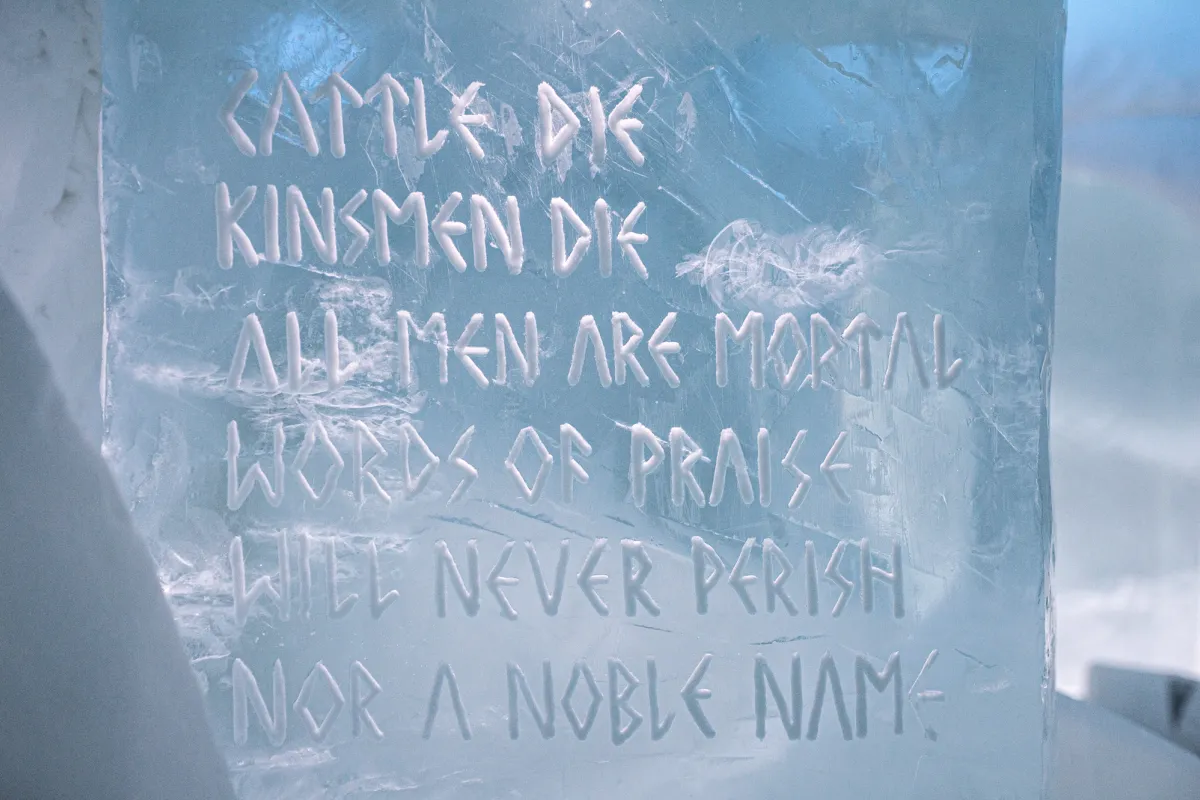 CATTLE DIE
KINSMEN DIE
ALL MEN ARE MORTAL
WORDS OF PRAISE
WILL NEVER PERISH
NOR A NOBLE NAME